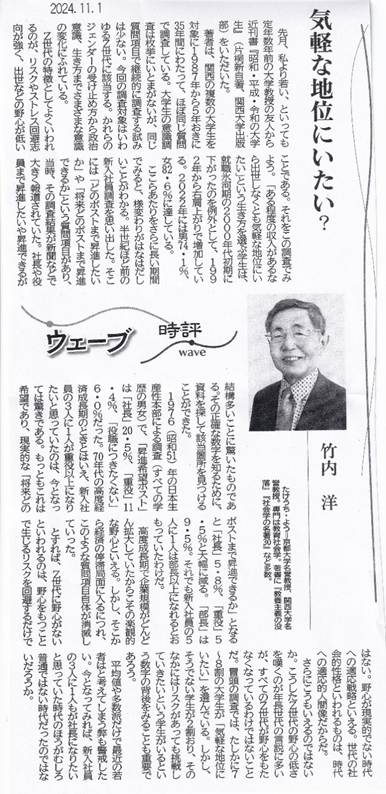 2024.11.1
気軽な地位にいたい?
先月、私より若い、といっても
定年数年前の大学教授の友人から
近刊書『昭和・平成・令和の大学
生』(片桐新自著、関西大学出版
部)をいただいた。
著者は、関西の複数の大学生を
対象に1987年から5年おきに
35年間にわたって、ほぼ同じ質問
で調査している。大学生の意識調
査は枚挙にいとまがないが、同じ
質問項目で継続的に調査する試み
は少ない。今回の調査対象はいわ
ゆるZ世代に該当する。かれらの
ジェンダーの受け止め方から政治
意識、生き方までさまざまな意識
の変化にふれている。
Z世代の特徴としてよくいわれ
るのが、リスクやストレス回避志
向が強く、出世などの野心が低い
ことである。それをこの調査でみ
よう。「ある程度の収入があるな
ら出世しなくとも気軽な地位にい
たい」という生き方を選ぶ学生は、
就職氷河期の2000年代初期に
下がったのを例外として、199
2年から右肩上がりで増加してい
る。2022年には男74・1%、
女82・6%に達している。
ここらあたりをさらに長い期間
でみると、様変わりがはなはだし
いことがわかる。半世紀ほど前の
新入社員調査を思い出した。そこ
には「どのポストまで昇進したい
か」や「将来どのポストまで昇進
できるか」という質問項目があり、
当時、その調査結果が新聞などで
大きく報道されていた。社長や役
員まで昇進したいや昇進できるが
時評
ウェーブ
wave
竹内 洋
たけうち・よう=京都大学名誉教授、関西大学名
誉教授。専門は教育社会学。著書に「教養主義の没
落」「社会学の名著30」など多数。
結構多いことに驚いたものであ
る。その正確な数字を知るために、
資料を探して該当箇所を見つける
ことができた。
1976(昭和51)年の日本生
産性本部による調査(すべての学
歴の男女)で、「昇進希望ポスト」
は「社長」20・5%、「重役」11
・4%、「役職につきたくない」
6・0%だった。70年代の高度経
済成長期のときとはいえ、新入社
員の3人に1人が重役以上になり
たいと思っていたのは、今となっ
ては驚きである。もっともこれは
希望であり、現実的な「将来どの
ポストまで昇進できるか」となる
と「社長」5・8%、「重役」5
・5%と大幅に減る。「部長」は
9・5%。それでも新入社員の5
人に1人は部長以上になれるとお
もっていたわけだ。
高度成長期で企業規模がどんど
ん拡大していたからこその楽観的
な野心といえる。しかし、そこか
ら経済の停滞局面に入るにつれ、
このような質問項目自体が消滅し
ていった。
とすれば、Z世代に野心がない
といわれるのは、野心をもつこと
で生じるリスクを回避するだけで
はない。野心が現実的でない時代
への適応戦略といえる。世代の社
会的性格といわれるものは、時代
への適応的人間像だからだ。
さらにこうもいえるのではない
か。こうしたZ世代の野心の低さ
を嘆くのが年長世代の言説に多い
が、すべてのZ世代が野心をもた
なくなっているわけではないこと
だ。冒頭の調査では、たしかに7
〜8割の大学生が「気軽な地位に
いたい」を選んでいる。しかし、
そうでない学生が2割おり、その
なかにはリスクがあっても挑戦し
ていきたいという学生がいるとい
う数字の背後をみることも重要で
あろう。
平均値や多数派だけで最近の若
者はと考えてしまう弊も警戒した
い。今となってみれば、新入社員
の3人に1人もが社長になりたい
と思っていた時代のほうがむしろ
普通ではない時代だったのではな
いだろうか。